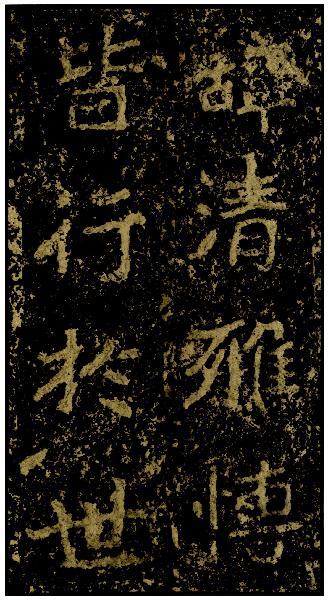 辞清雅博
皆行於世